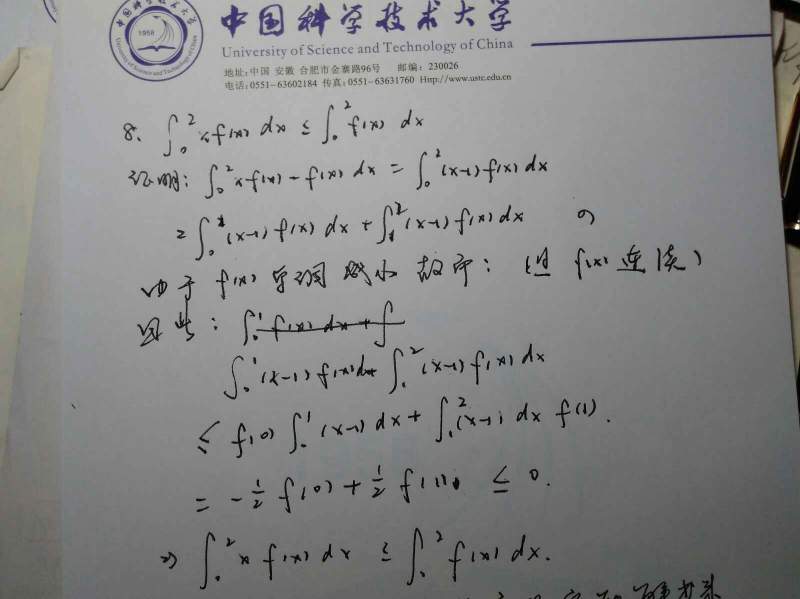 中国科学技术大学
1958
University of Science and Technology of China
地址:中国 安徽 合肥市金寨路96号 邮编:230026
电话:0551-63602184 传真:0551-63631760 Http://www.ustc.edu.cn
8、 ∫₀² x f(x) dx ≤ ∫₀² f(x) dx
证明: ∫₀² x f(x) - f(x) dx = ∫₀² (x-1) f(x) dx
= ∫₀¹ (x-1) f(x) dx + ∫₁² (x-1) f(x) dx
由于 f(x) 单调减小 故可: (且 f(x) 连续)
因此: ∫₀¹ f(x) dx + ∫
∫₀¹ (x-1) f(x) dx + ∫₁² (x-1) f(x) dx
≤ f(0) ∫₀¹ (x-1) dx + ∫₁² (x-1) dx f(1).
= -½ f(0) + ½ f(1) ≤ 0.
⇒ ∫₀² x f(x) dx ≤ ∫₀² f(x) dx.